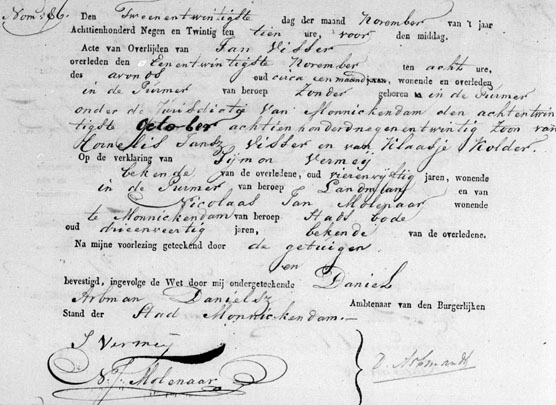 Nom: 86. Den Tweeentwintigste dag der maand November van 't jaar
Achttienhonderd Negen en Twintig ten tien ure, voor den middag.
Acte van Overlijden van Jan Visser
overleden den eenentwintigste November ten acht ure,
des avonds oud circa een maand jaren, wonende en overleden
in de Purmer van beroep zonder geboren in de Purmer
onder de Jurisdictie Van Monnickendam den achtentwin
tigste October achttienhonderdnegenentwintig zoon van
Kornelis Jansz Visser en van Klaasje Kolder.
Op de verklaring van Sijmon Vermeij
bekende van de overledene, oud vierenvijftig jaren, wonende
in de Purmer van beroep Landman en van
Nicolaas Jan Molenaar wonende
te Monnickendam van beroep Stads bode
oud drieenveertig jaren, bekende van de overledene.
Na mijne voorlezing geteekend door de getuigen
en
bevestigd, ingevolge de Wet door mij ondergeteekende Daniel
Arbman Danielsz Ambtenaar van den Burgerlijken
Stand der Stad Monnickendam.—
S Vermeij
N. J. Molenaar
D. Arbmandz